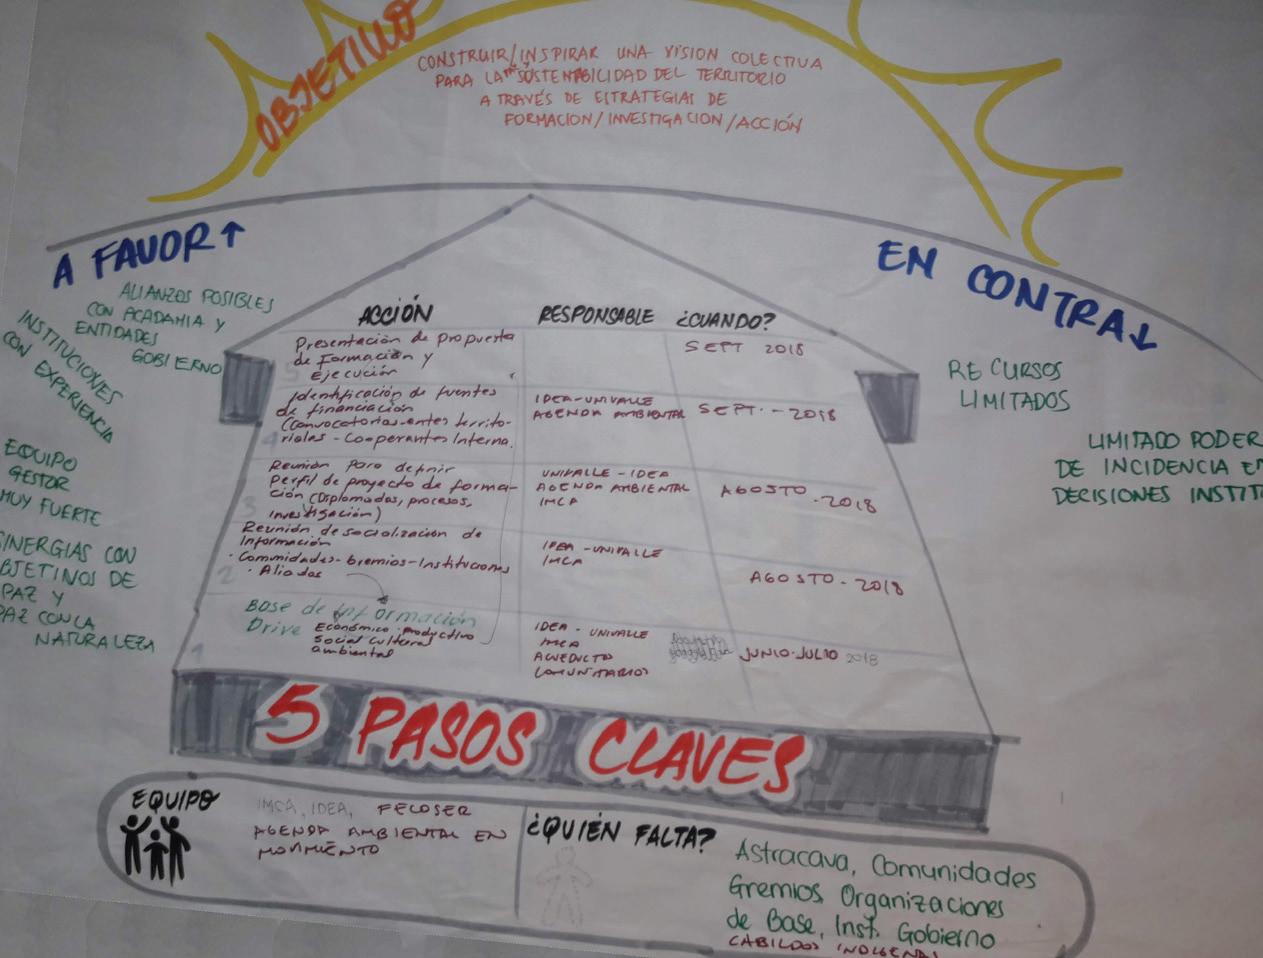 OBJETIVO
CONSTRUIR/INSPIRAR UNA VISION COLECTIVA
PARA LA SUSTENTABILIDAD DEL TERRITORIO
A TRAVÉS DE ESTRATEGIAS DE
FORMACION/INVESTIGACION/ACCIÓN
A FAVOR↑
ALIANZAS POSIBLES
CON ACADAMIA Y
ENTIDADES
GOBIERNO
INSTITUCIONES
CON EXPERIENCIA
EQUIPO
GESTOR
MUY FUERTE
SINERGIAS CON
OBJETINOS DE
PAZ Y
PAZ CON LA
NATURALEZA
EN CONTRA↓
RECURSOS
LIMITADOS
LIMITADO PODER
DE INCIDENCIA EN
DECISIONES INSTIT
ACCIÓN RESPONSABLE ¿CUANDO?
5
Presentación de propuesta
de Formación y
Ejecución
SEPT 2018
4
Identificación de fuentes
de financiación
(convocatorias-entes territo-
riales - Cooperantes Interna.
IDEA-UNIVALLE
AGENDA AMBIENTAL
SEPT. - 2018
3
Reunión para definir
Perfil de proyecto de forma-
ción (Diplomados, procesos,
investigación)
UNIVALLE - IDEA
AGENDA AMBIENTAL
IMCA
AGOSTO - 2018
2
Reunión de socialización de
Información
· Comunidades - Gremios - Instituciones
· Aliados
IDEA - UNIVALLE
IMCA
AGOSTO - 2018
1
Base de información
Drive Económico-productivo
Social Cultural
ambiental
IDEA - UNIVALLE
IMCA
ACUEDUCTOS
COMUNITARIOS
JUNIO-JULIO 2018
5 PASOS CLAVES
EQUIPO
IMCA, IDEA, FECOSER
AGENDA AMBIENTAL EN
MOVIMIENTO
¿QUIÉN FALTA?
Astracava, Comunidades
Gremios Organizaciones
de Base, Inst. Gobierno
CABILDOS INDIGENAS